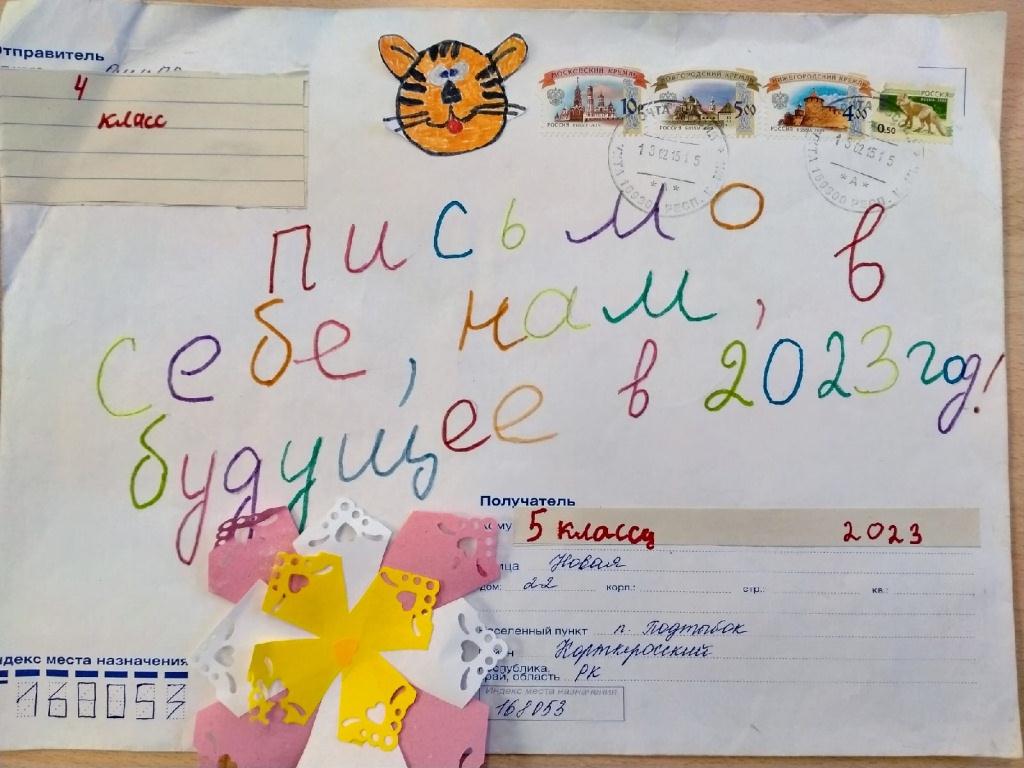 Отправитель
4
класс
МОСКОВСКИЙ КРЕМЛЬ
10
РОССИЯ
НОВГОРОДСКИЙ КРЕМЛЬ
5.00
РОССИЯ
НИЖЕГОРОДСКИЙ КРЕМЛЬ
4.00
РОССИЯ
РОССИЯ
0.50
письмо в
себе, нам, в
будущее в 2023 год!
Получатель
Кому 5 классу 2023
улица Новая
дом: 22 корп.: стр.: кв.:
Населенный пункт п. Подтыбок
Район Корткеросский
Республика,
край, область РК
Индекс места назначения
168053
Индекс места назначения